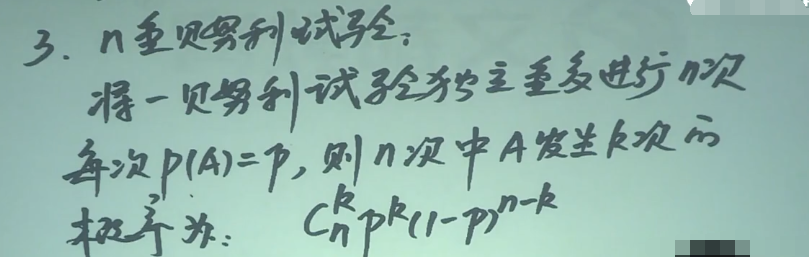 3. n重贝努利试验:
将一贝努利试验独立重复进行n次
每次P(A)=P, 则n次中A发生k次的
概率为: C_n^k P^k (1-P)^{n-k}